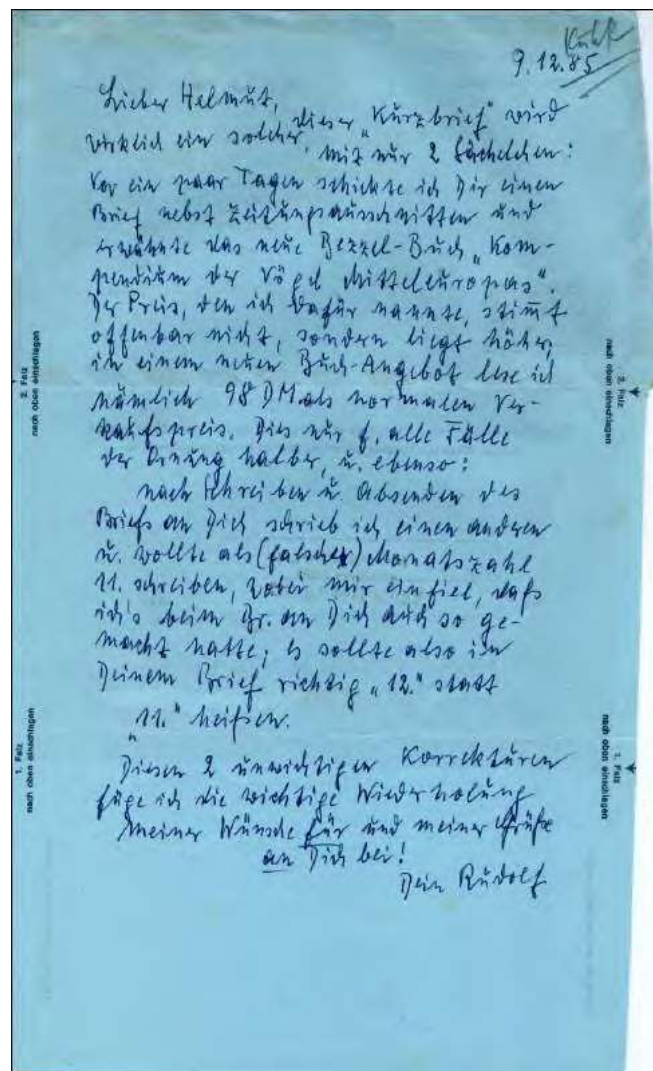 Kühk
9.12.85
Lieber Helmut,
dieser „Kurzbrief" wird
wirklich ein solcher, mit nur 2 Sächelchen:
Vor ein paar Tagen schickte ich Dir einen
Brief nebst Zeitungsausschnitten und
erwähnte das neue Bezzel-Buch „Kom-
pendium der Vögel Mitteleuropas".
Der Preis, den ich dafür nannte, stimmt
offenbar nicht, sondern liegt höher,
in einem neuen Buch-Angebot lese ich
nämlich 98 DM als normalen Ver-
kaufspreis. Dies nur f. alle Fälle
der Ornung halber, u. ebenso:
nach Schreiben u. Absenden des
Briefs an Dich schrieb ich einen anderen
u. wollte als (falsche) Monatszahl
11. schreiben, wobei mir einfiel, daß
ich's beim Br. an Dich auch so ge-
macht hatte; es sollte also in
Deinem Brief richtig „12." statt
„11." heißen.
Diesen 2 unwichtigen Korrekturen
füge ich die wichtige Wiederholung
meiner Wünsche für und meiner Grüße
an Dich bei!
Dein Rudolf
2. Falz
nach oben einschlagen
1. Falz
nach oben einschlagen
2. Falz
nach oben einschlagen
1. Falz
nach oben einschlagen